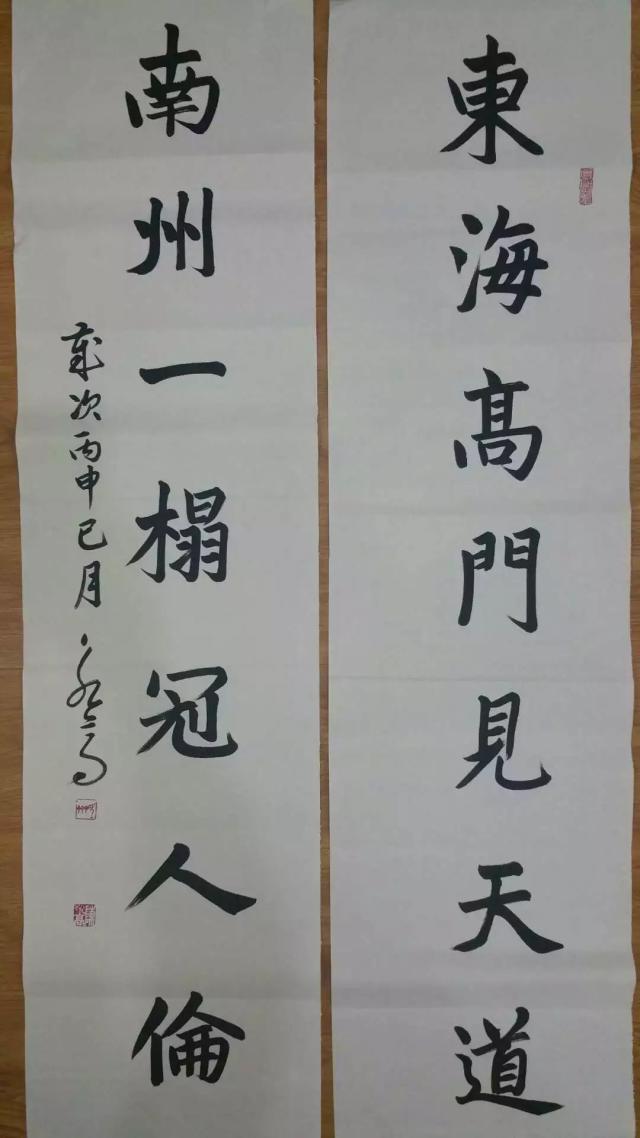 東海高門見天道
南州一榻冠人倫
歲次丙申巳月